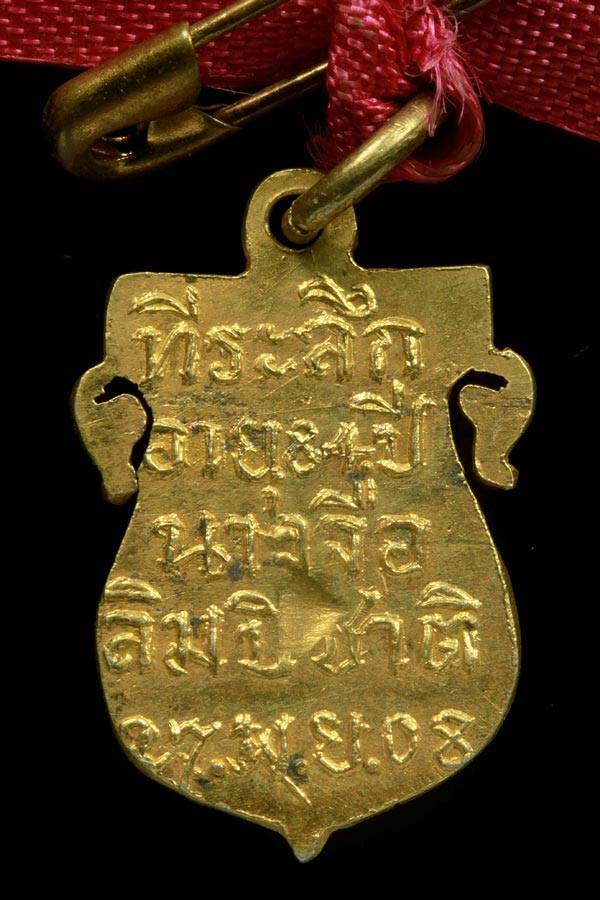 ที่ระลึก
อายุ๘๔ปี
นางจือ
ลิมปิชาติ
๒๗.พ.ย.๐๘